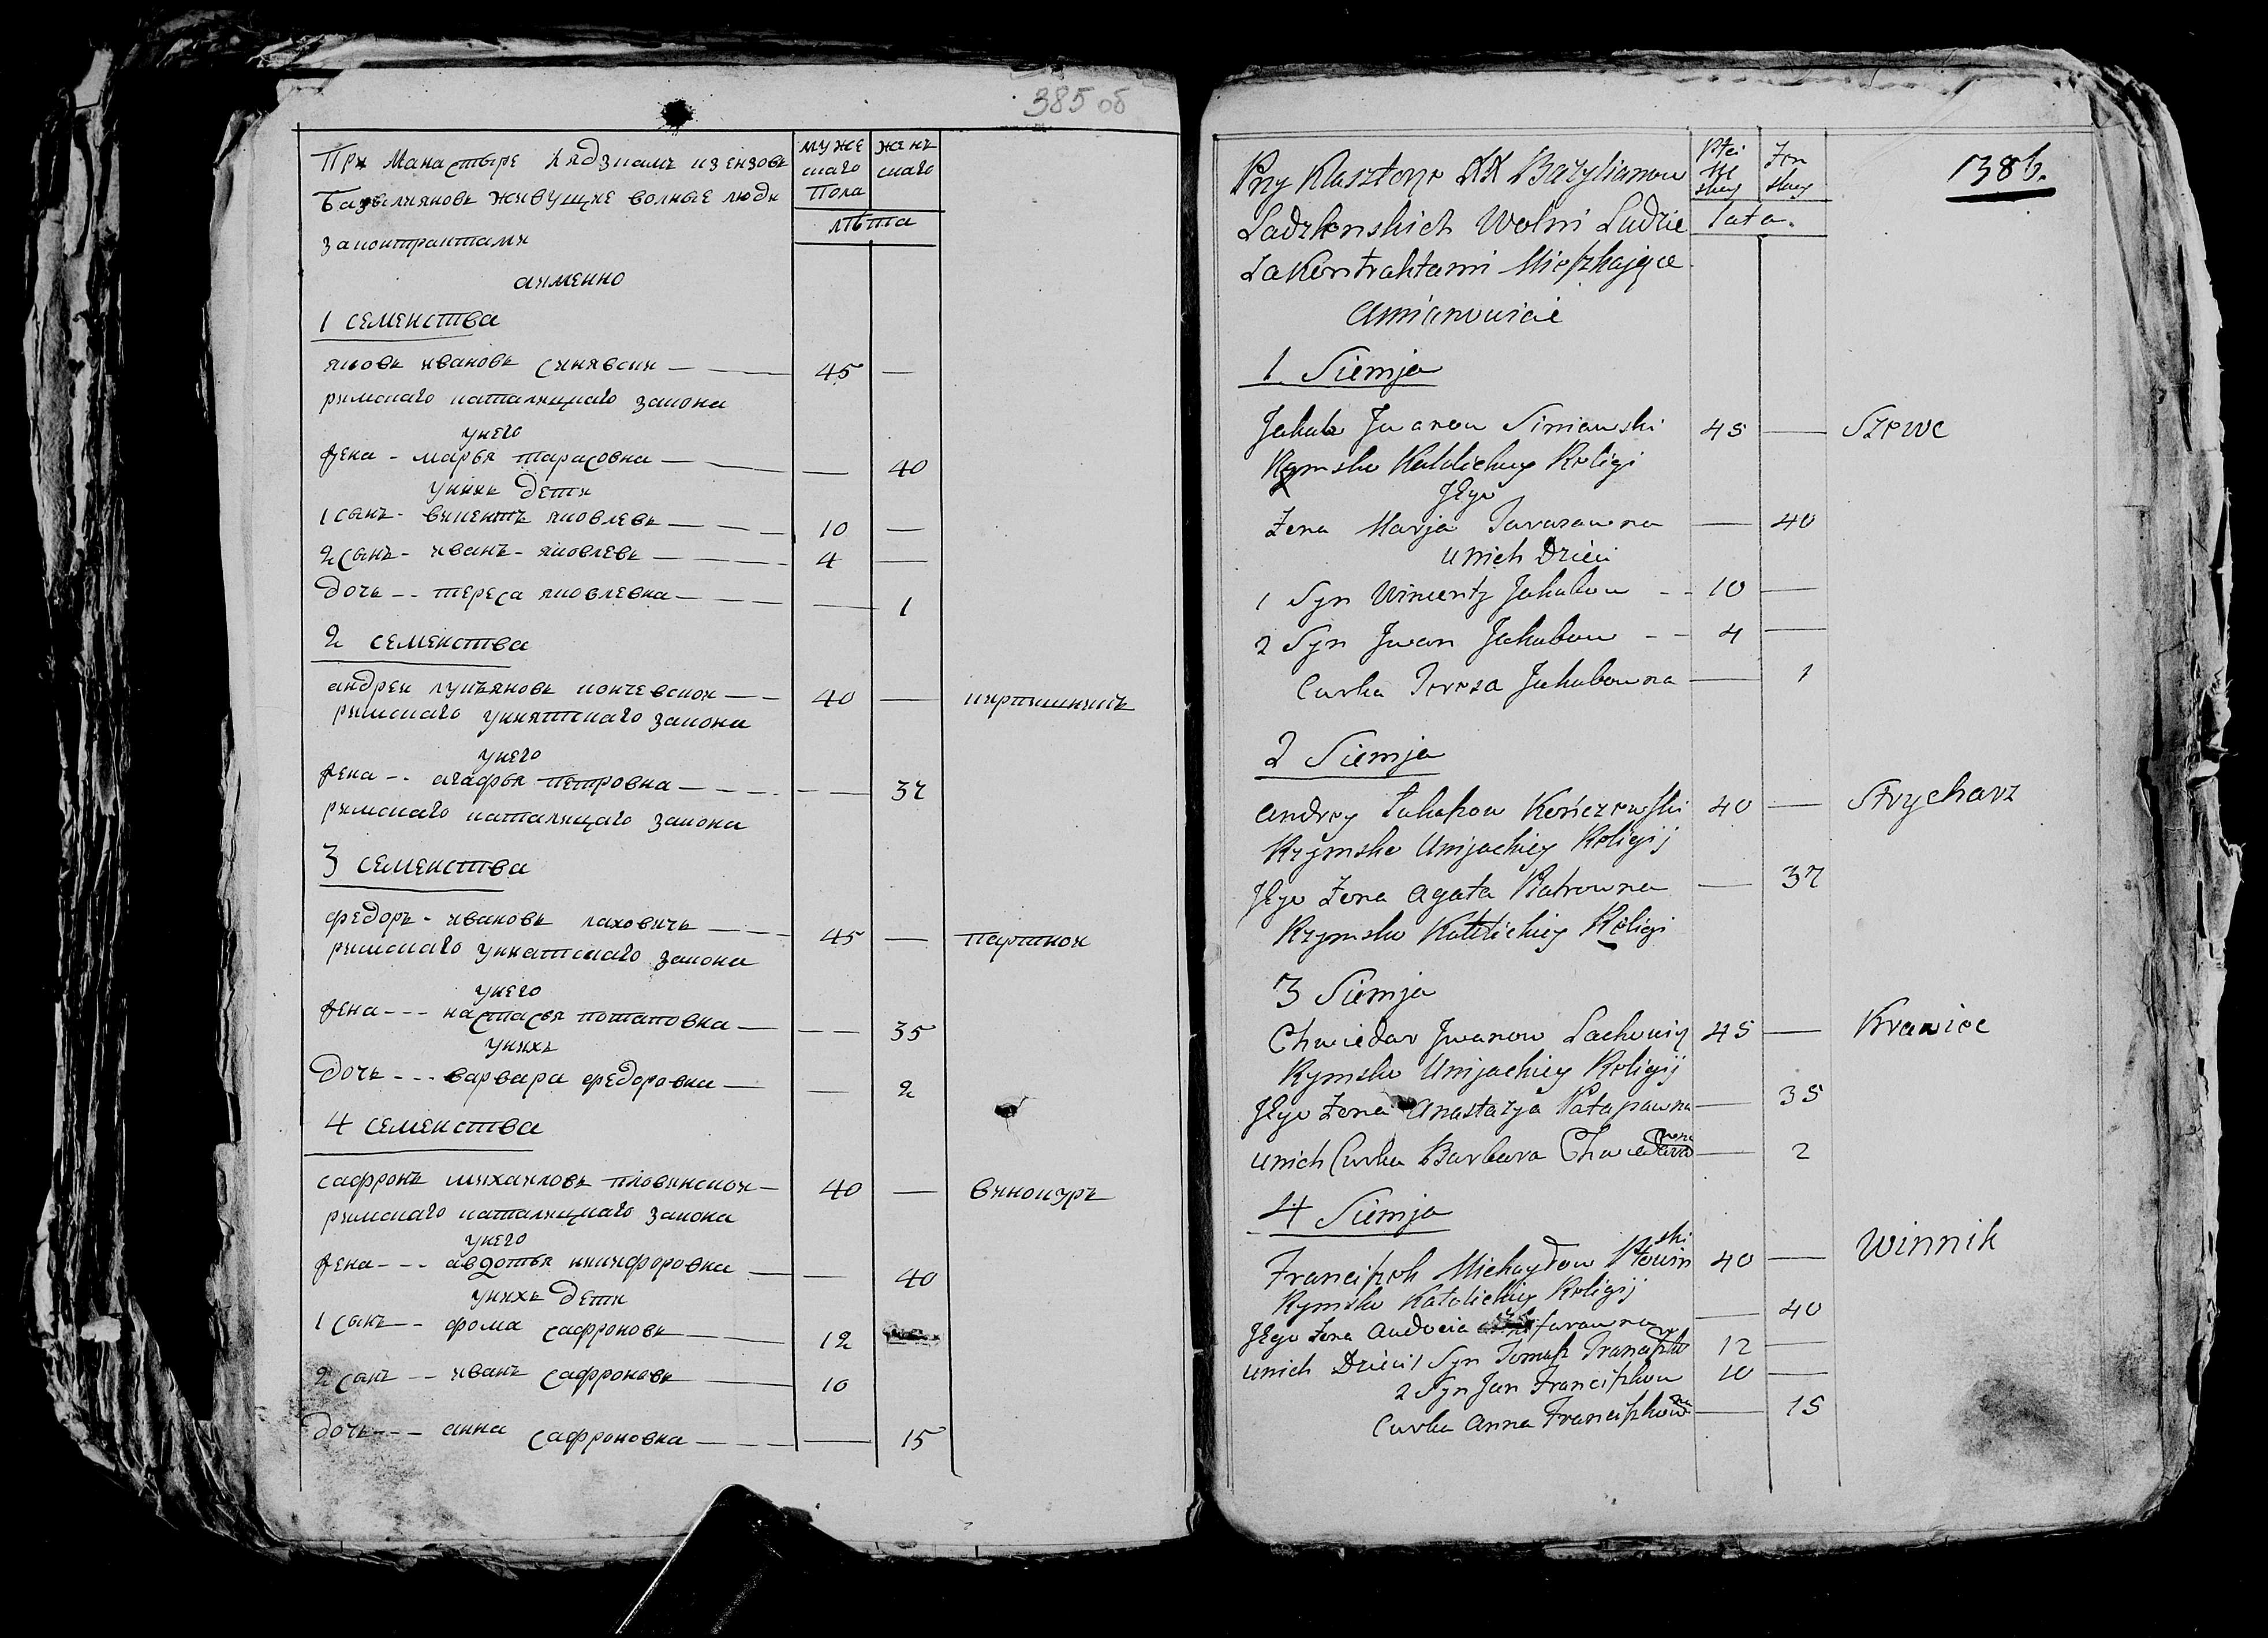 385 об
При Манастыре Лядзкамъ изензовъ
Базылияновъ живущие волные люди
законтрактами
аименно
муже
скаго
Пола
женъ
скаго
лѣта
1 семенства
яковъ ивановъ синявски — — — 45 —
римскаго каталицкаго закона
унего
жена - марья тарасовна — — — — 40
унихъ дети
1 сынъ - винентъ яковлевъ — — — 10 —
2 сынъ - иванъ - яковлевъ — — — 4 —
дочь -- тереса яковлевна — — — — 1
2 семенства
андреи лукъяновъ кончевскои — — 40 — кирпишникъ
римскаго униятскаго закона
унего
жена -- агафья петровна — — — — 37
римскаго каталицкаго закона
3 семенства
федоръ - ивановъ лаховичъ — — 45 — партнои
римскаго униатскаго закона
унего
жена --- настасья потаповна — — — 35
унихъ
дочь --- варвара федоровна — — 2
4 семенства
сафронъ михаиловъ пловинскои — 40 — винокуръ
римскаго каталицкаго закона
унего
жена --- авдотья никифоровна — — 40
унихъ дети
1 сынъ -- фома сафроновъ — — 12
2 сынъ -- иванъ сафроновъ — — 10
дочь --- анна сафроновна — — — — 15
1386.
Przy Klasztorze XX Bazylianow
Ladzkenskich Wolni Ludzie
Zakontraktami Mieszkające
Amianowicie
Płci
Mę
skey
Zen
skey
lata.
1. Siemja
Jakub Jwanow Siniawski 45 — Szewc
Rzymsko Katolickiey Religi
Jego
Zena Marja Tarasawna — 40
unich Dzieci
1 Syn Wincenty Jakubow -- 10 —
2 Syn Jwan Jakubow -- 4 —
Curka Teresa Jakubowna — 1
2 Siemja
Andrey Łukaszow Kończewski 40 — Strycharz
Rzymsko Unijackiey Religij
Jego Zena Agata Piatrowna — 37
Rzymsko Katolickiey Religi
3 Siemja
Chwiedar Jwanow Lachowicz 45 — Krawiec
Rymsko Unijackiey Religij
Jego Zena Anastazya Patapawna — 35
unich Curka Barbara Chwiedarowna — 2
4 Siemja
Franciszek Michayłow Płowinski 40 — Winnik
Rymsko Katolickiey Religij
Jego Zena Audocia farawna — 40
unich Dzieci 1 Syn Tomasz Franciszkow 12 —
2 Syn Jan Franciszkow 10 —
Curka Anna Franciszkowna — 15